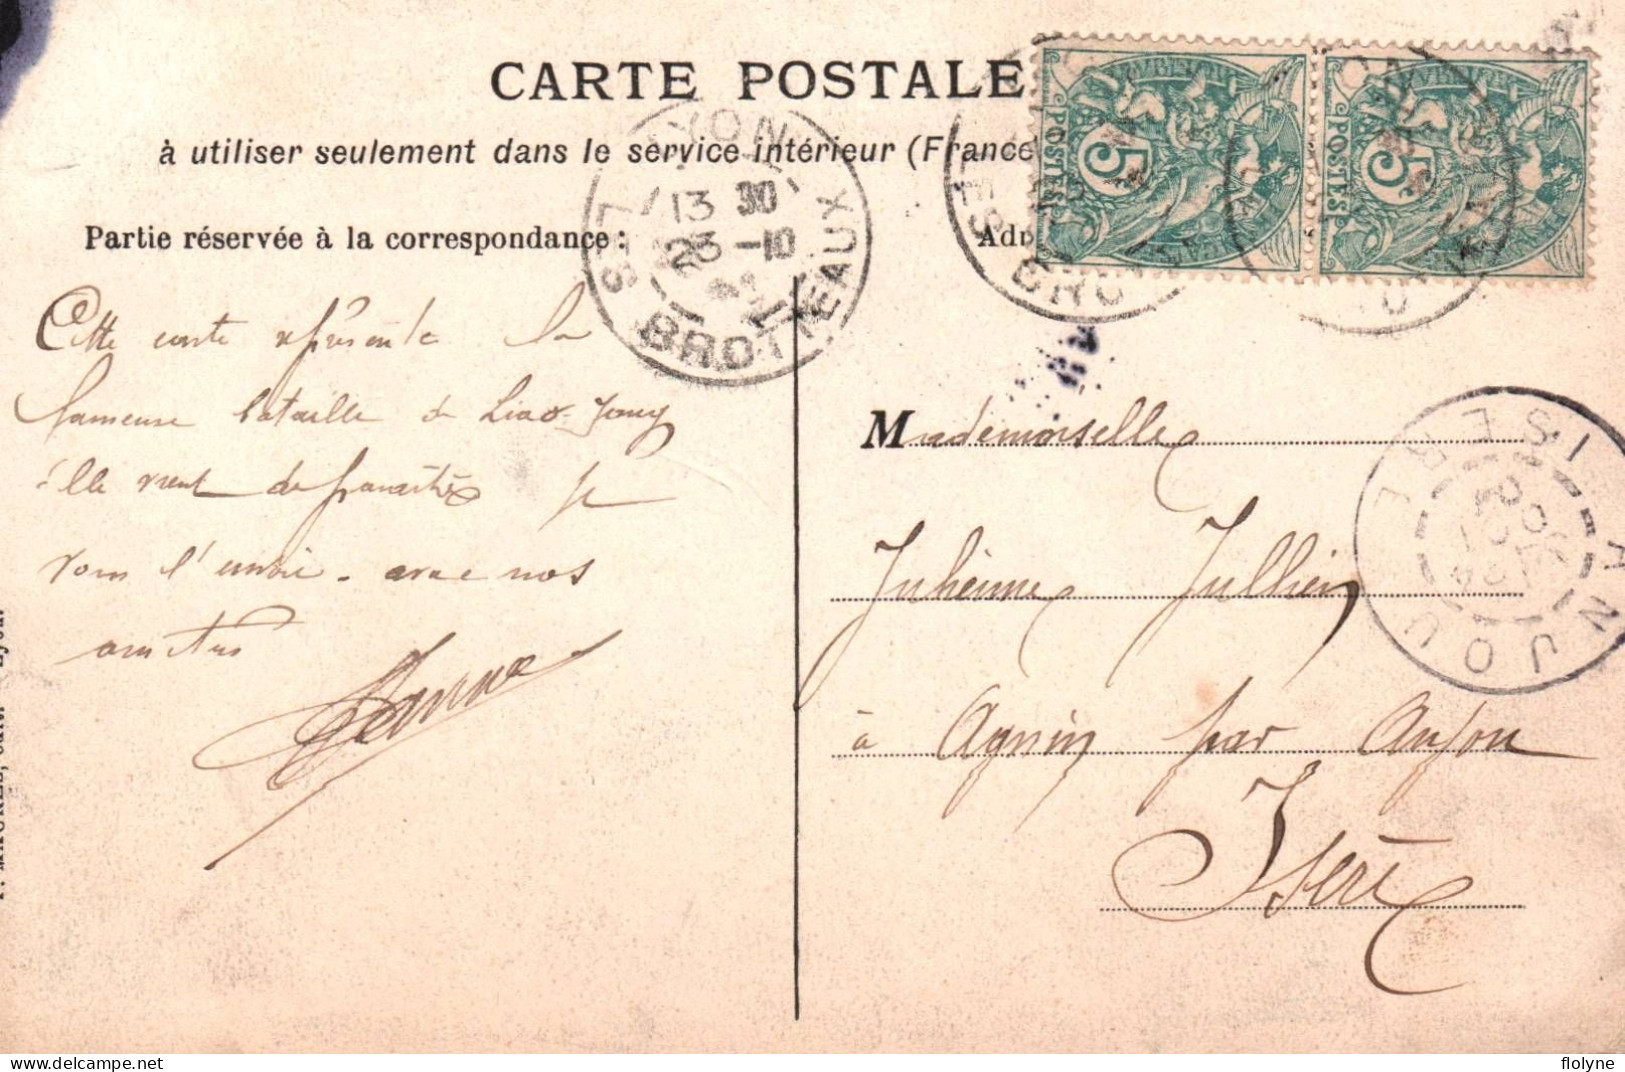 CARTE POSTALE
à utiliser seulement dans le service intérieur (France
Partie réservée à la correspondance:
LYON
LES BROTTEAUX
13 30
23 -10
POSTES
5
POSTES
5
Cette carte représente la
fameuse bataille de Liao-Yang
elle vient de paraître je
vous l'envoie. avec nos
amitiés
Mademoiselle
Julienne Jullien
à Agnin par Anjou
Isère
ANJOU
ISERE
flolyne